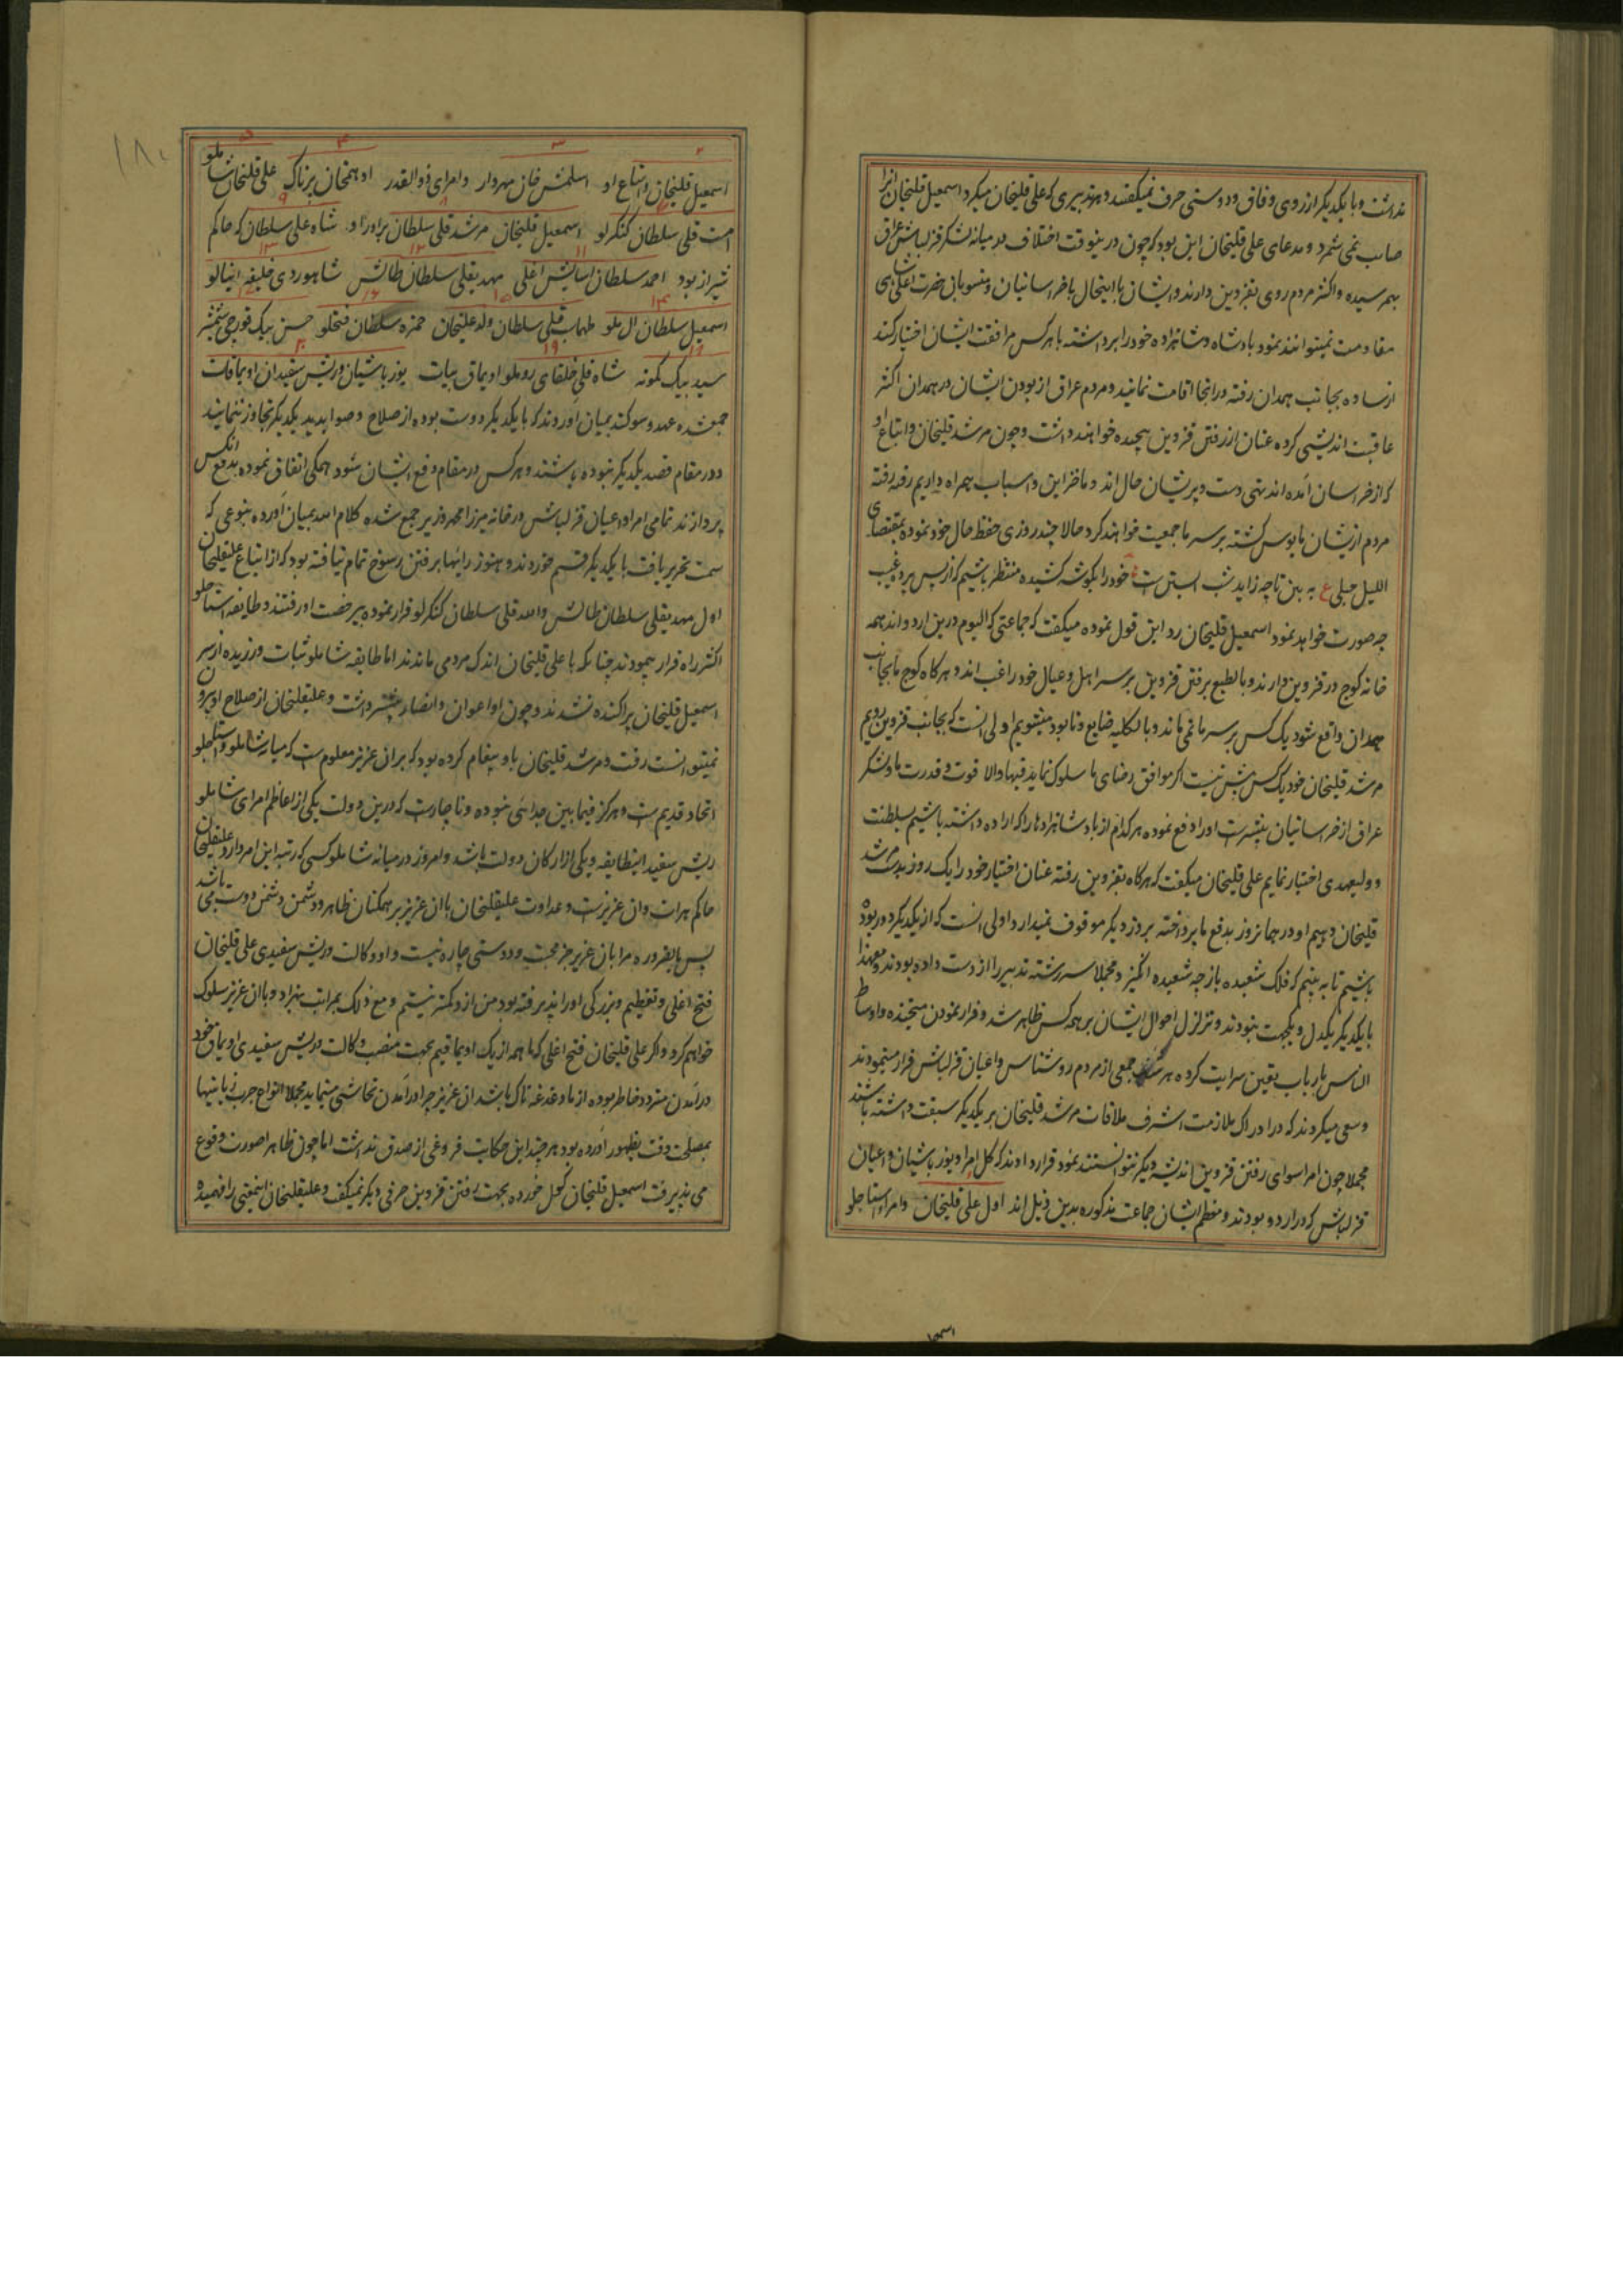 نداشت و با یکدیگر از روی وفاق و دوستی حرف نمیگفتند و هر تدبیری که علی قلیخان میکرد اسمعیل قلیخان انرا
صایب نمی شمرد و مدعای علی قلیخان این بود که چون درینوقت اختلاف در میانه لشکر قزلباش عراق
بهم رسیده و اکثر مردم روی بقزوین دارند و ایشان با اینحال با خراسانیان و منسوبان حضرت اعلی شاهی
مقاومت نمیتوانند نمود پادشاه و شاهزاده خود را برداشته با هر کس مرافقت ایشان اختیار کند
از ساوه بجانب همدان رفته در انجا اقامت نمایند و مردم عراق از بودن ایشان در همدان اکثر
عاقبت اندیشی کرده عنان از رفتن قزوین پیچیده خواهند داشت و چون مرشد قلیخان و اتباع او
که از خراسان آمده اند تهی دست و پریشان حال اند و ما خزاین و اسباب همراه داریم رفته رفته
مردم ازیشان مایوس گشته بر سر ما جمعیت خواهند کرد حالا چند روزی حفظ حال خود نموده بمقتضای
اللیل حبلی ع به بین تا چه زاید شب ابستن است خود را بگوشه کشیده منتظر باشیم که از پس پرده غیب
چه صورت خواهد نمود اسمعیل قلیخان رد این قول نموده میگفت که جماعتی که الیوم درین اردو اند همه
خانه کوچ در قزوین دارند و بالطبع برفتن قزوین بر سر اهل و عیال خود راغب اند و هرگاه کوچ ما بجانب
همدان واقع شود یک کس بر سر ما نمی ماند و بالکلیه ضایع و نابود میشویم اولی انست که بجانب قزوین رویم
مرشد قلیخان خود یک کس بیش نیست اگر موافق رضای ما سلوک نماید فبها والا قوت و قدرت ما و لشکر
عراق از خراسانیان بیشترست او را دفع نموده هر کدام از پادشاهزادها را که اراده داشته باشیم بسلطنت
و ولیعهدی اختیار نمایم علی قلیخان میگفت که هرگاه بقزوین رفته عنان اختیار خود را یک روز بدست مرشد
قلیخان دهیم او در همانروز بدفع ما پرداخته بروز دیگر موقوف نمیدارد اولی انست که از یکدیگر دور بوده
باشیم تا به بینم که فلک شعبده باز چه شعبده انگیزد مجملا سر رشته تدبیر را از دست داده بودند و معهذا
با یکدیگر یکدل و یکجهت نبودند و تزلزل احوال ایشان بر همه کس ظاهر شد و فرار نمودن متجنده و اوساط
الناس بارباب یقین سرایت کرده هر شب جمعی از مردم روشناس و اعیان قزلباش فرار مینمودند
و سعی میکردند که در ادراک ملازمت اشرف ملاقات مرشد قلیخان بر یکدیگر سبقت داشته باشند
مجملا چون امرا سوای رفتن قزوین اندیشه دیگر نتوانستند نمود قرار دادند که کل امرا و یوزباشیان و اعیان
قزلباش که در اردو بودند و معظم ایشان جماعت مذکوره بدین ذیل اند اول علی قلیخان وامراء استاجلو
اسمعیل
۱۸۰
اسمعیل قلیخان و اتباع او اسلمش خان مهردار و امرای ذوالقدر ادهمخان پرناک علی قلیخان شاملو
امت قلی سلطان کنگرلو اسمعیل قلیخان مرشد قلی سلطان برادر او شاه علی سلطان که حاکم
شیراز بود احمد سلطان اسایش اغلی مهدیقلی سلطان طالش شاهوردی خلیفه اینالو
اسمعیل سلطان الپلو طهماسبقلی سلطان ولد علیخان حمزه سلطان فتحلو حسن بیک قورچی شمشیر
سید بیک کمونه شاه قلی خلفای روملو اویماق بیات یوزباشیان و ریش سفیدان اویماقات
جمع شده عهد و سوگند بمیان آوردند که با یکدیگر دوست بوده از صلاح و صوابدید یکدیگر تجاوز ننمایند
و در مقام قصد یکدیگر نبوده باشند و هر کس در مقام دفع ایشان شود همکی اتفاق نموده بدفع انکس
پردازند تمامی امرا و اعیان قزلباش در خانه میرزا محمد وزیر جمع شده کلام الله بمیان آورده بنوعی که
سمت تحریر یافت با یکدیگر قسم خوردند و هنوز رایها بر فتن رسوخ تمام نیافته بود که از اتباع علیقلیخان
اول مهدیقلی سلطان طالش و امت قلی سلطان کنگرلو فرار نموده بیرخصت او رفتند و طایفه استاجلو
اکثر راه فرار پیمودند چنانکه با علی قلیخان اندک مردمی ماندند اما طایفه شاملو ثبات ورزیده از سر
اسمعیل قلیخان پراکنده نشدند و چون او اعوان و انصار بیشتر داشت و علیقلیخان از صلاح او بیرون
نمیتوانست رفت و مرشد قلیخان باو پیغام کرده بود که بران عزیز معلومست که میانه شاملو و استاجلو
اتحاد قدیم ست و هرگز فیما بین جدائی نبوده و ناچارست که درین دولت یکی از اعاظم امرای شاملو
ریش سفید اینطایفه و یکی از ارکان دولت باشد و امروز در میانه شاملو کسی که رتبه این امر دارد علیقلیخان
حاکم هرات و ان عزیزست و عداوت علیقلیخان با ان عزیز بر همکنان ظاهر و دشمن دشمن دوست می باشد
پس بالضروره مرا بان عزیز جز محبت و دوستی چاره نیست و او وکالت و ریش سفیدی علی قلیخان
فتح اغلی و تعظیم و بزرگی او را پذیرفته بود من ازو کمتر نیستم و مع ذلک بمراتب بهتر ازو باان عزیز سلوک
خواهم کرد و اگر علی قلیخان فتح اغلی که ما همه از یک اویماقیم بجهت منصب وکالت و ریش سفیدی اویماق خود
در آمدن متردد خاطر بوده از ما دغدغه ناک باشد ان عزیز چرا در آمدن تحاشی مینماید مجملا انواع چرب زبانیها
بمصلحت وقت بظهور آورده بود هر چند این حکایت فروغی از صدق نداشت اما چون ظاهرا صورت وقوع
می پذیرفت اسمعیل قلیخان گول خورده بجهت رفتن قزوین حرفی دیگر نمیگفت و علیقلیخان اینمعنی را فهمیده